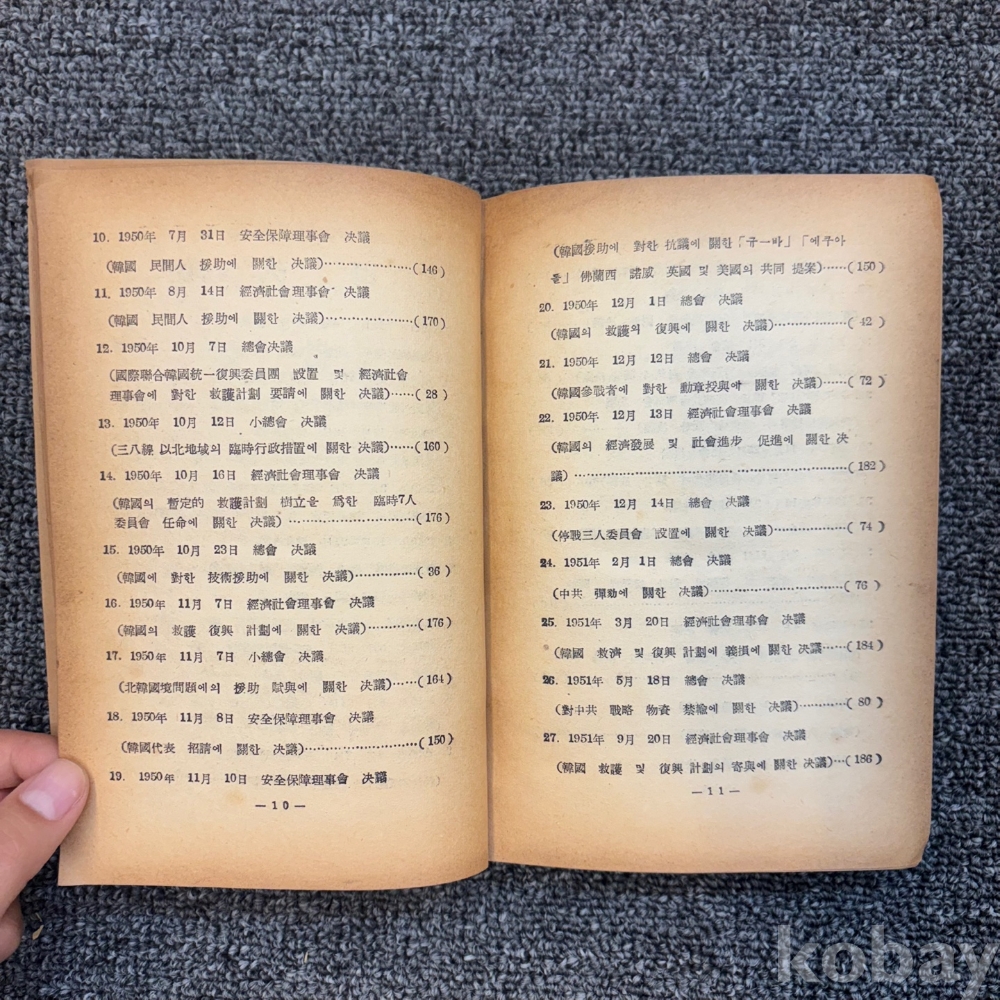 10. 1950年 7月 31日 安全保障理事會 决議
(韓國 民間人 援助에 關한 决議)…………………(146)
11. 1950年 8月 14日 經濟社會理事會 决議
(韓國 民間人 援助에 關한 决議)…………………(170)
12. 1950年 10月 7日 總會决議
(國際聯合韓國統一復興委員團 設置 및 經濟社會
理事會에 對한 救護計劃 要請에 關한 决議)……(28)
13. 1950年 10月 12日 小總會 决議
(三八線 以北地域의 臨時行政措置에 關한 决議)……(160)
14. 1950年 10月 16日 經濟社會理事會 决議
(韓國의 暫定的 救護計劃 樹立을 爲한 臨時7人
委員會 任命에 關한 决議) …………………(176)
15. 1950年 10月 23日 總會 决議
(韓國에 對한 技術援助에 關한 决議)……………(36)
16. 1950年 11月 7日 經濟社會理事會 决議
(韓國의 救護 復興 計劃에 關한 决議)……………(176)
17. 1950年 11月 7日 小總會 决議
(北韓國境問題에의 援助 賦與에 關한 决議)……(164)
18. 1950年 11月 8日 安全保障理事會 决議
(韓國代表 招請에 關한 决議)…………………(150)
19. 1950年 11月 10日 安全保障理事會 决議
—10—
(韓國援助에 對한 抗議에 關한「규一바」「에쿠아
돌」佛蘭西 諾威 英國 및 美國의 共同 提案)……(150)
20. 1950年 12月 1日 總會 决議
(韓國의 救護의 復興에 關한 决議)………………(42)
21. 1950年 12月 12日 總會 决議
(韓國參戰者에 對한 勳章授與에 關한 决議)……(72)
22. 1950年 12月 13日 經濟社會理事會 决議
(韓國의 經濟發展 및 社會進步 促進에 關한 决
議) ……………………………………………(182)
23. 1950年 12月 14日 總會 决議
(停戰三人委員會 設置에 關한 决議)……………(74)
24. 1951年 2月 1日 總會 决議
(中共 彈劾에 關한 决議)…………………………(76)
25. 1951年 3月 20日 經濟社會理事會 决議
(韓國 救濟 및 復興 計劃에 義損에 關한 决議)……(184)
26. 1951年 5月 18日 總會 决議
(對中共 戰略 物資 禁輸에 關한 决議)……………(80)
27. 1951年 9月 20日 經濟社會理事會 决議
(韓國 救護 및 復興 計劃의 寄與에 關한 决議)…(186)
—11—
kobay